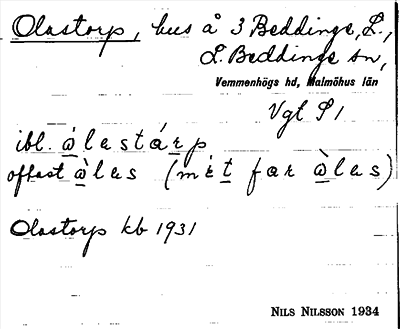 Olastorp, hus å 3 Beddinge, L.,
L. Beddinge sn,
Vemmenhögs hd, Malmöhus län
Vgl S 1
ibl. ò̱lastárp
oftast ò̱las (mèt far ò̱las)
Olastorp kb 1931
NILS NILSSON 1934